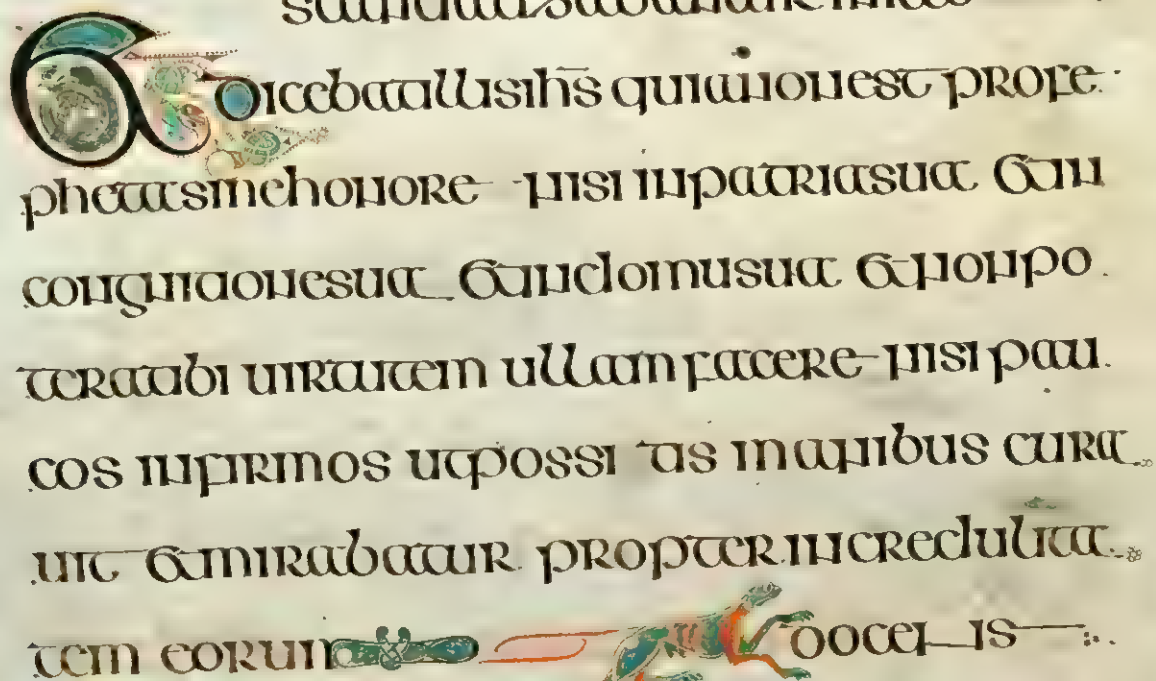 Et dicebat illis ihs quia non est profe
pheta sine honore nisi in patria sua et in
congnatione sua et in domu sua et non po
terat ibi uirtutem ullam facere nisi pau
cos infirmos inpossi tis manibus cura
uit et mirabatur propter incredulita
tem eorum docens